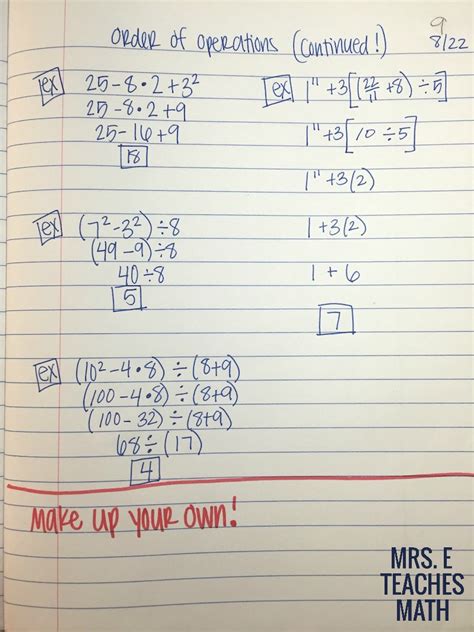 9
order of operations (continued!) 8/22
ex 25-8•2+3²
25-8•2+9
25-16+9
18
ex 1¹¹+3[(22/11+8)÷5]
1¹¹+3[10÷5]
1¹¹+3(2)
1+3(2)
1+6
7
ex (7²-3²)÷8
(49-9)÷8
40÷8
5
ex (10²-4•8)÷(8+9)
(100-4•8)÷(8+9)
(100-32)÷(8+9)
68÷(17)
4
Make up your own!
MRS. E
TEACHES
MATH